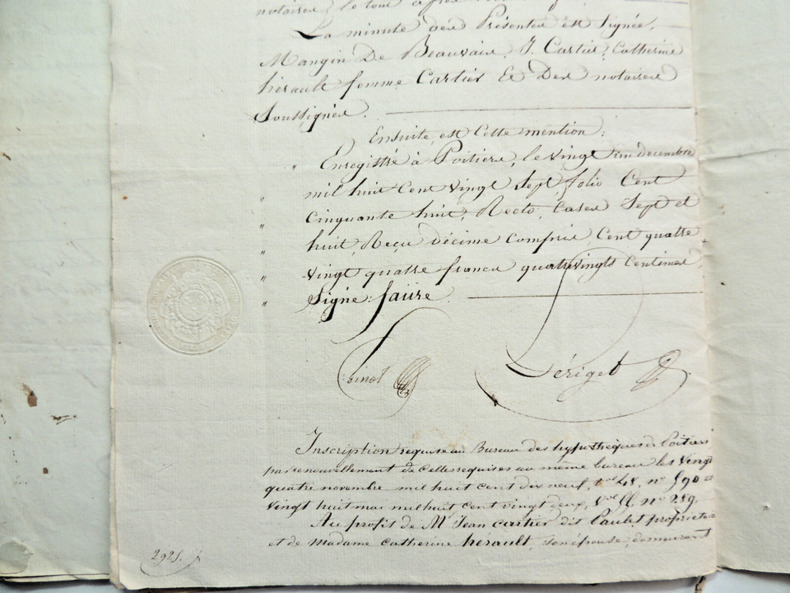 notaires, le tout
La minute des Présentes est Signée,
Mangin De Beauvais, J. Cartier, Catherine
hérault femme Cartier Et Des notaires
Soussignés.
Ensuite est Cette mention:
Enregistré à Poitiers, le vingt un decembre
mil huit Cent vingt Sept, folio Cent
Cinquante huit, Recto, Cases Sept et
huit, Reçu décime Compris Cent quatre
vingt quatre francs quatrevingts Centimes
Signé: faure.
Périget
Inscription requise au Bureau des hypothèques de Poitiers
par renouvellement de celles requises au même bureau les vingt
quatre novembre mil huit cent dix neuf, vol 48, n° 590 =
vingt huit mai mil huit cent vingt deux, vol n° 289.
Au profit de Mr Jean Cartier dit Paulet propriétaire
et de Madame Catherine hérault, son épouse, demeurant